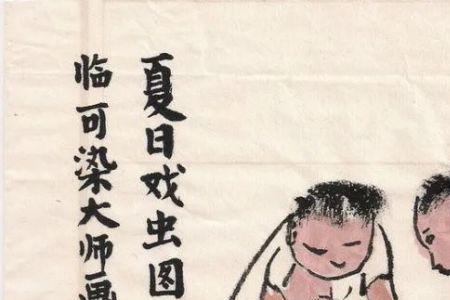 夏日戏虫图
临可染大师画